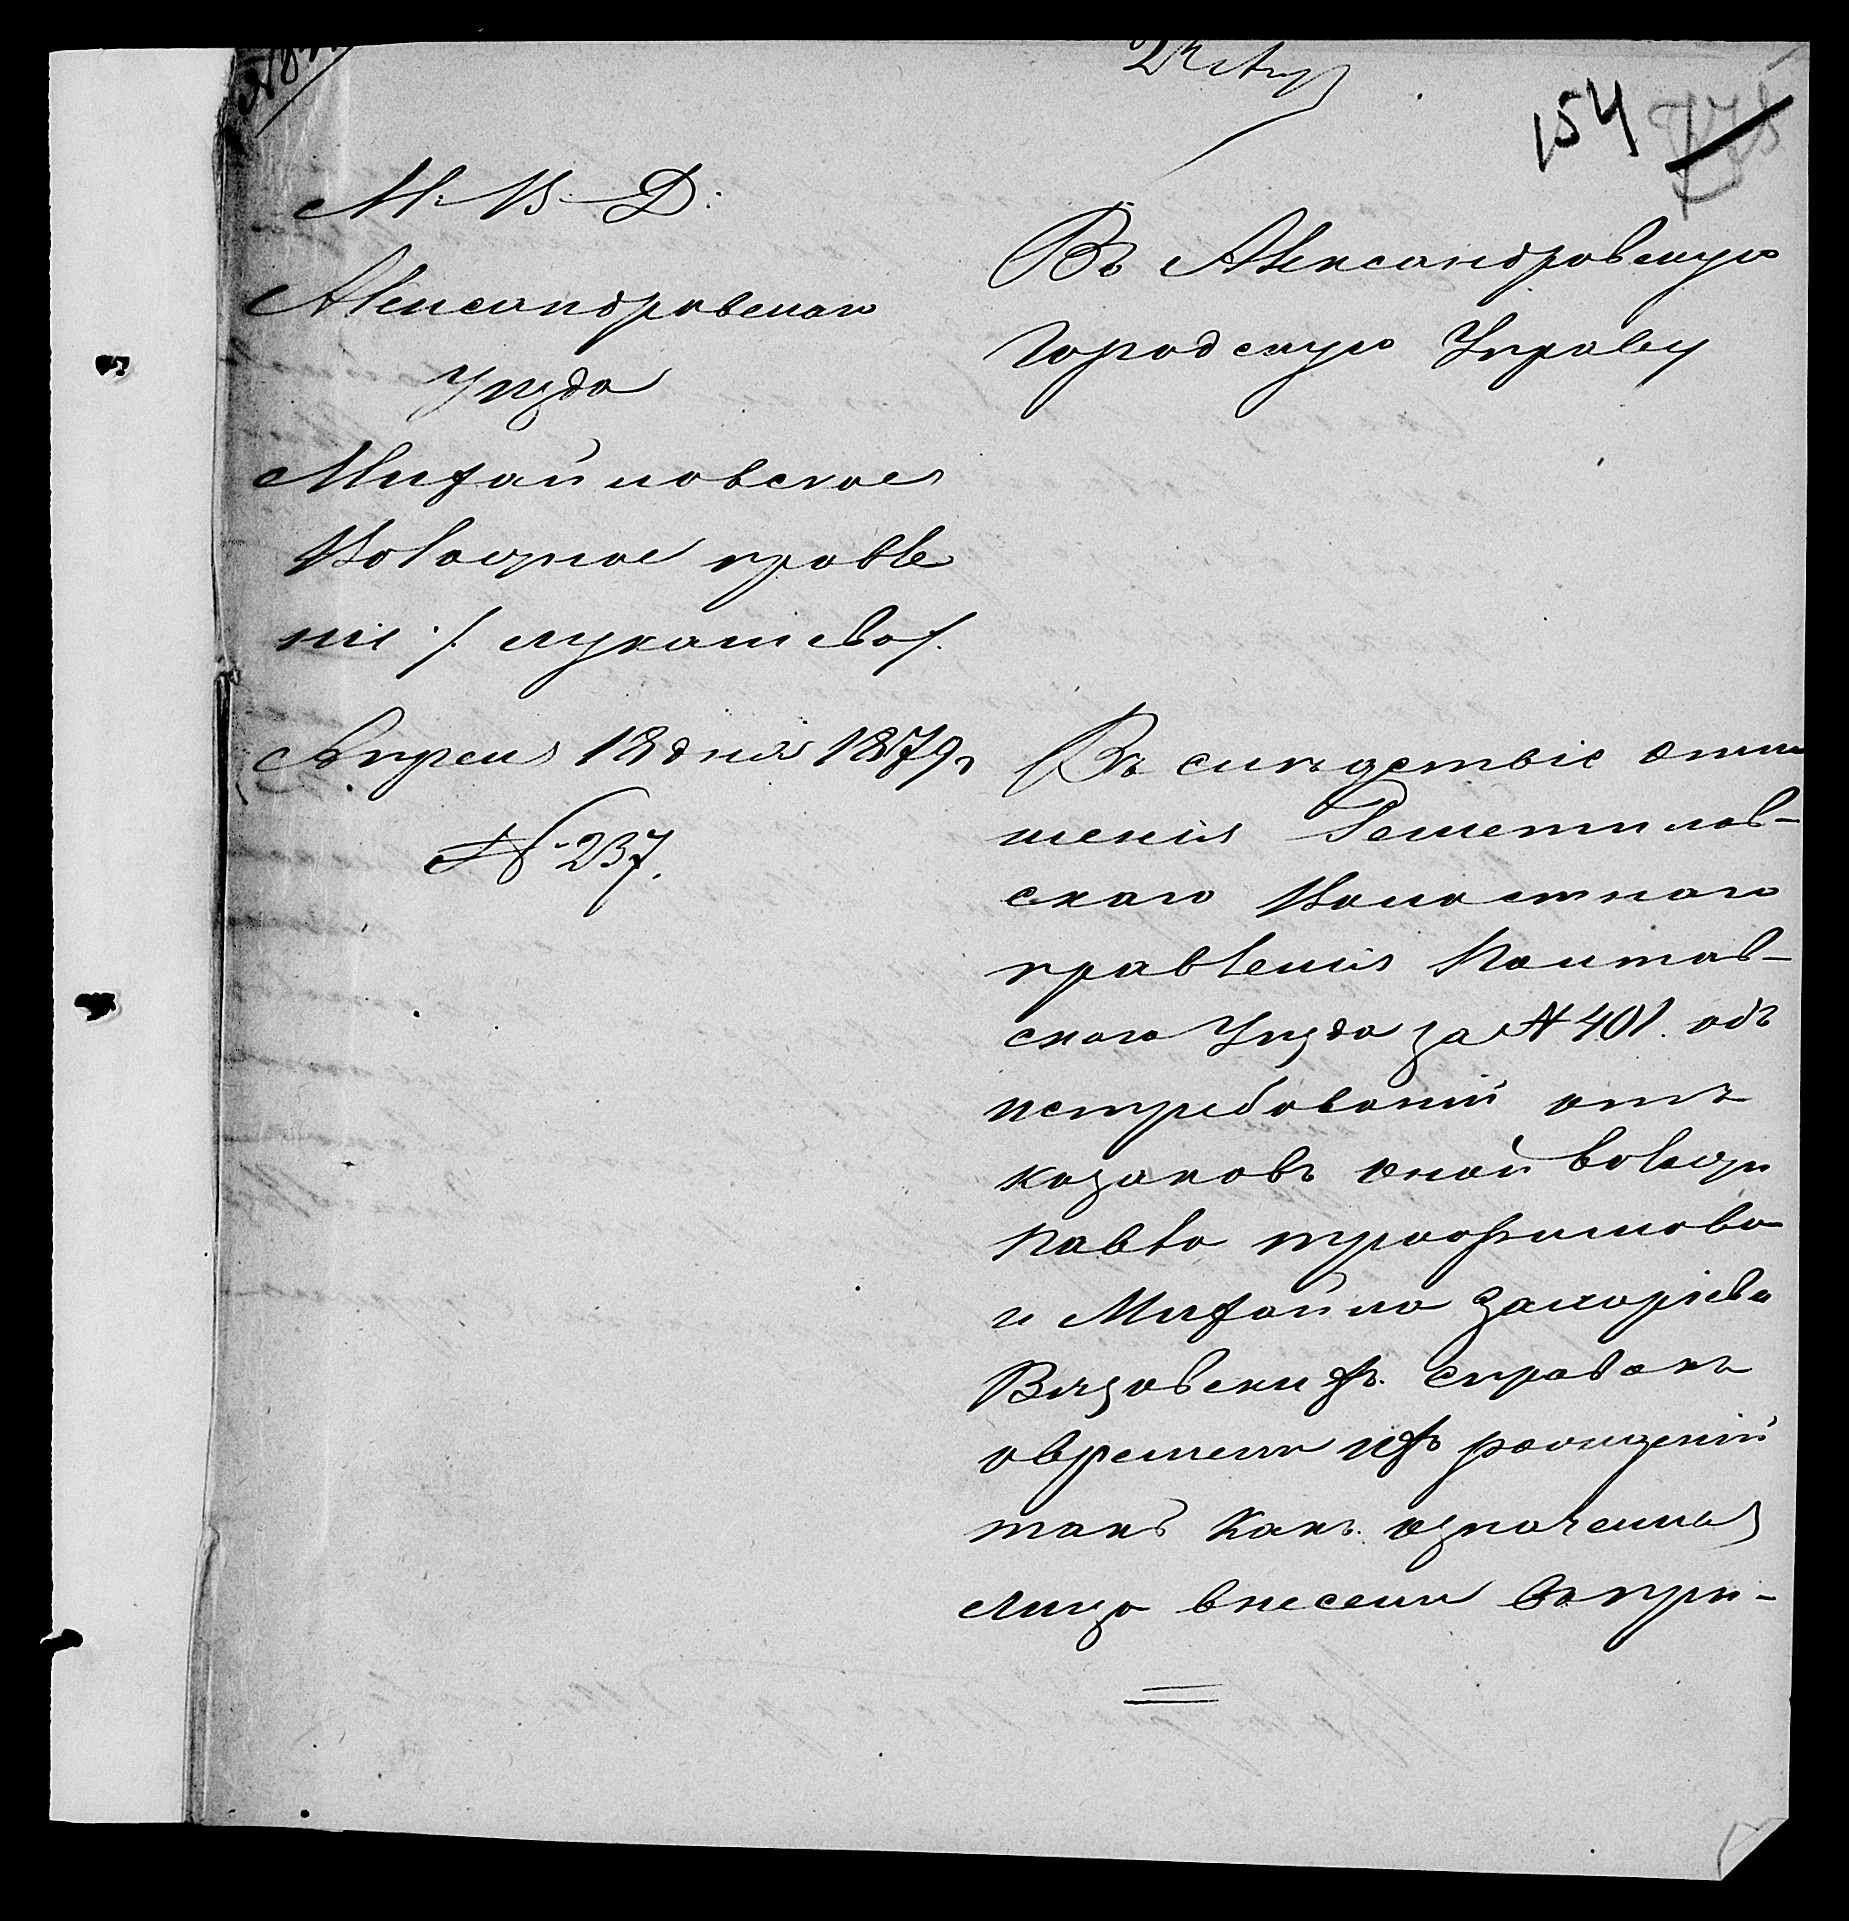 154
М. В. Д.
Александровскаго
Уѣзда
Михайловское
Волосное правле
ніе /: лукашево :/.
Апреля 18 дня 1879 г
№ 237.
Въ Александровскую
Городскую Управу
Въ слѣдствіе отно
шенія Решетилов-
скаго Волостнаго
правленія Полтав-
скаго Уѣзда за № 401. объ
истребованіи отъ
казаковъ оной волости
Павла трофимова
и Михайла Захаріева
Вязовскихъ справокъ
овремени ихъ рожденій
такъ какъ означенныя
лица внесены въ при-